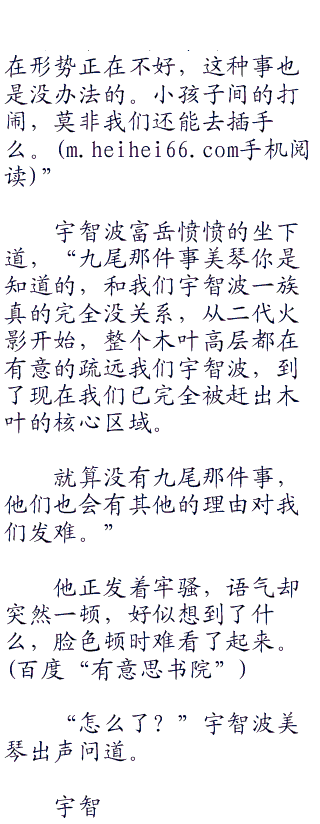 在形势正在不好，这种事也
是没办法的。小孩子间的打
闹，莫非我们还能去插手
么。(m.heihei66.com手机阅
读)”
宇智波富岳愤愤的坐下
道，“九尾那件事美琴你是
知道的，和我们宇智波一族
真的完全没关系，从二代火
影开始，整个木叶高层都在
有意的疏远我们宇智波，到
了现在我们已完全被赶出木
叶的核心区域。
就算没有九尾那件事，
他们也会有其他的理由对我
们发难。”
他正发着牢骚，语气却
突然一顿，好似想到了什
么，脸色顿时难看了起来。
(百度“有意思书院”)
“怎么了？”宇智波美
琴出声问道。
宇智